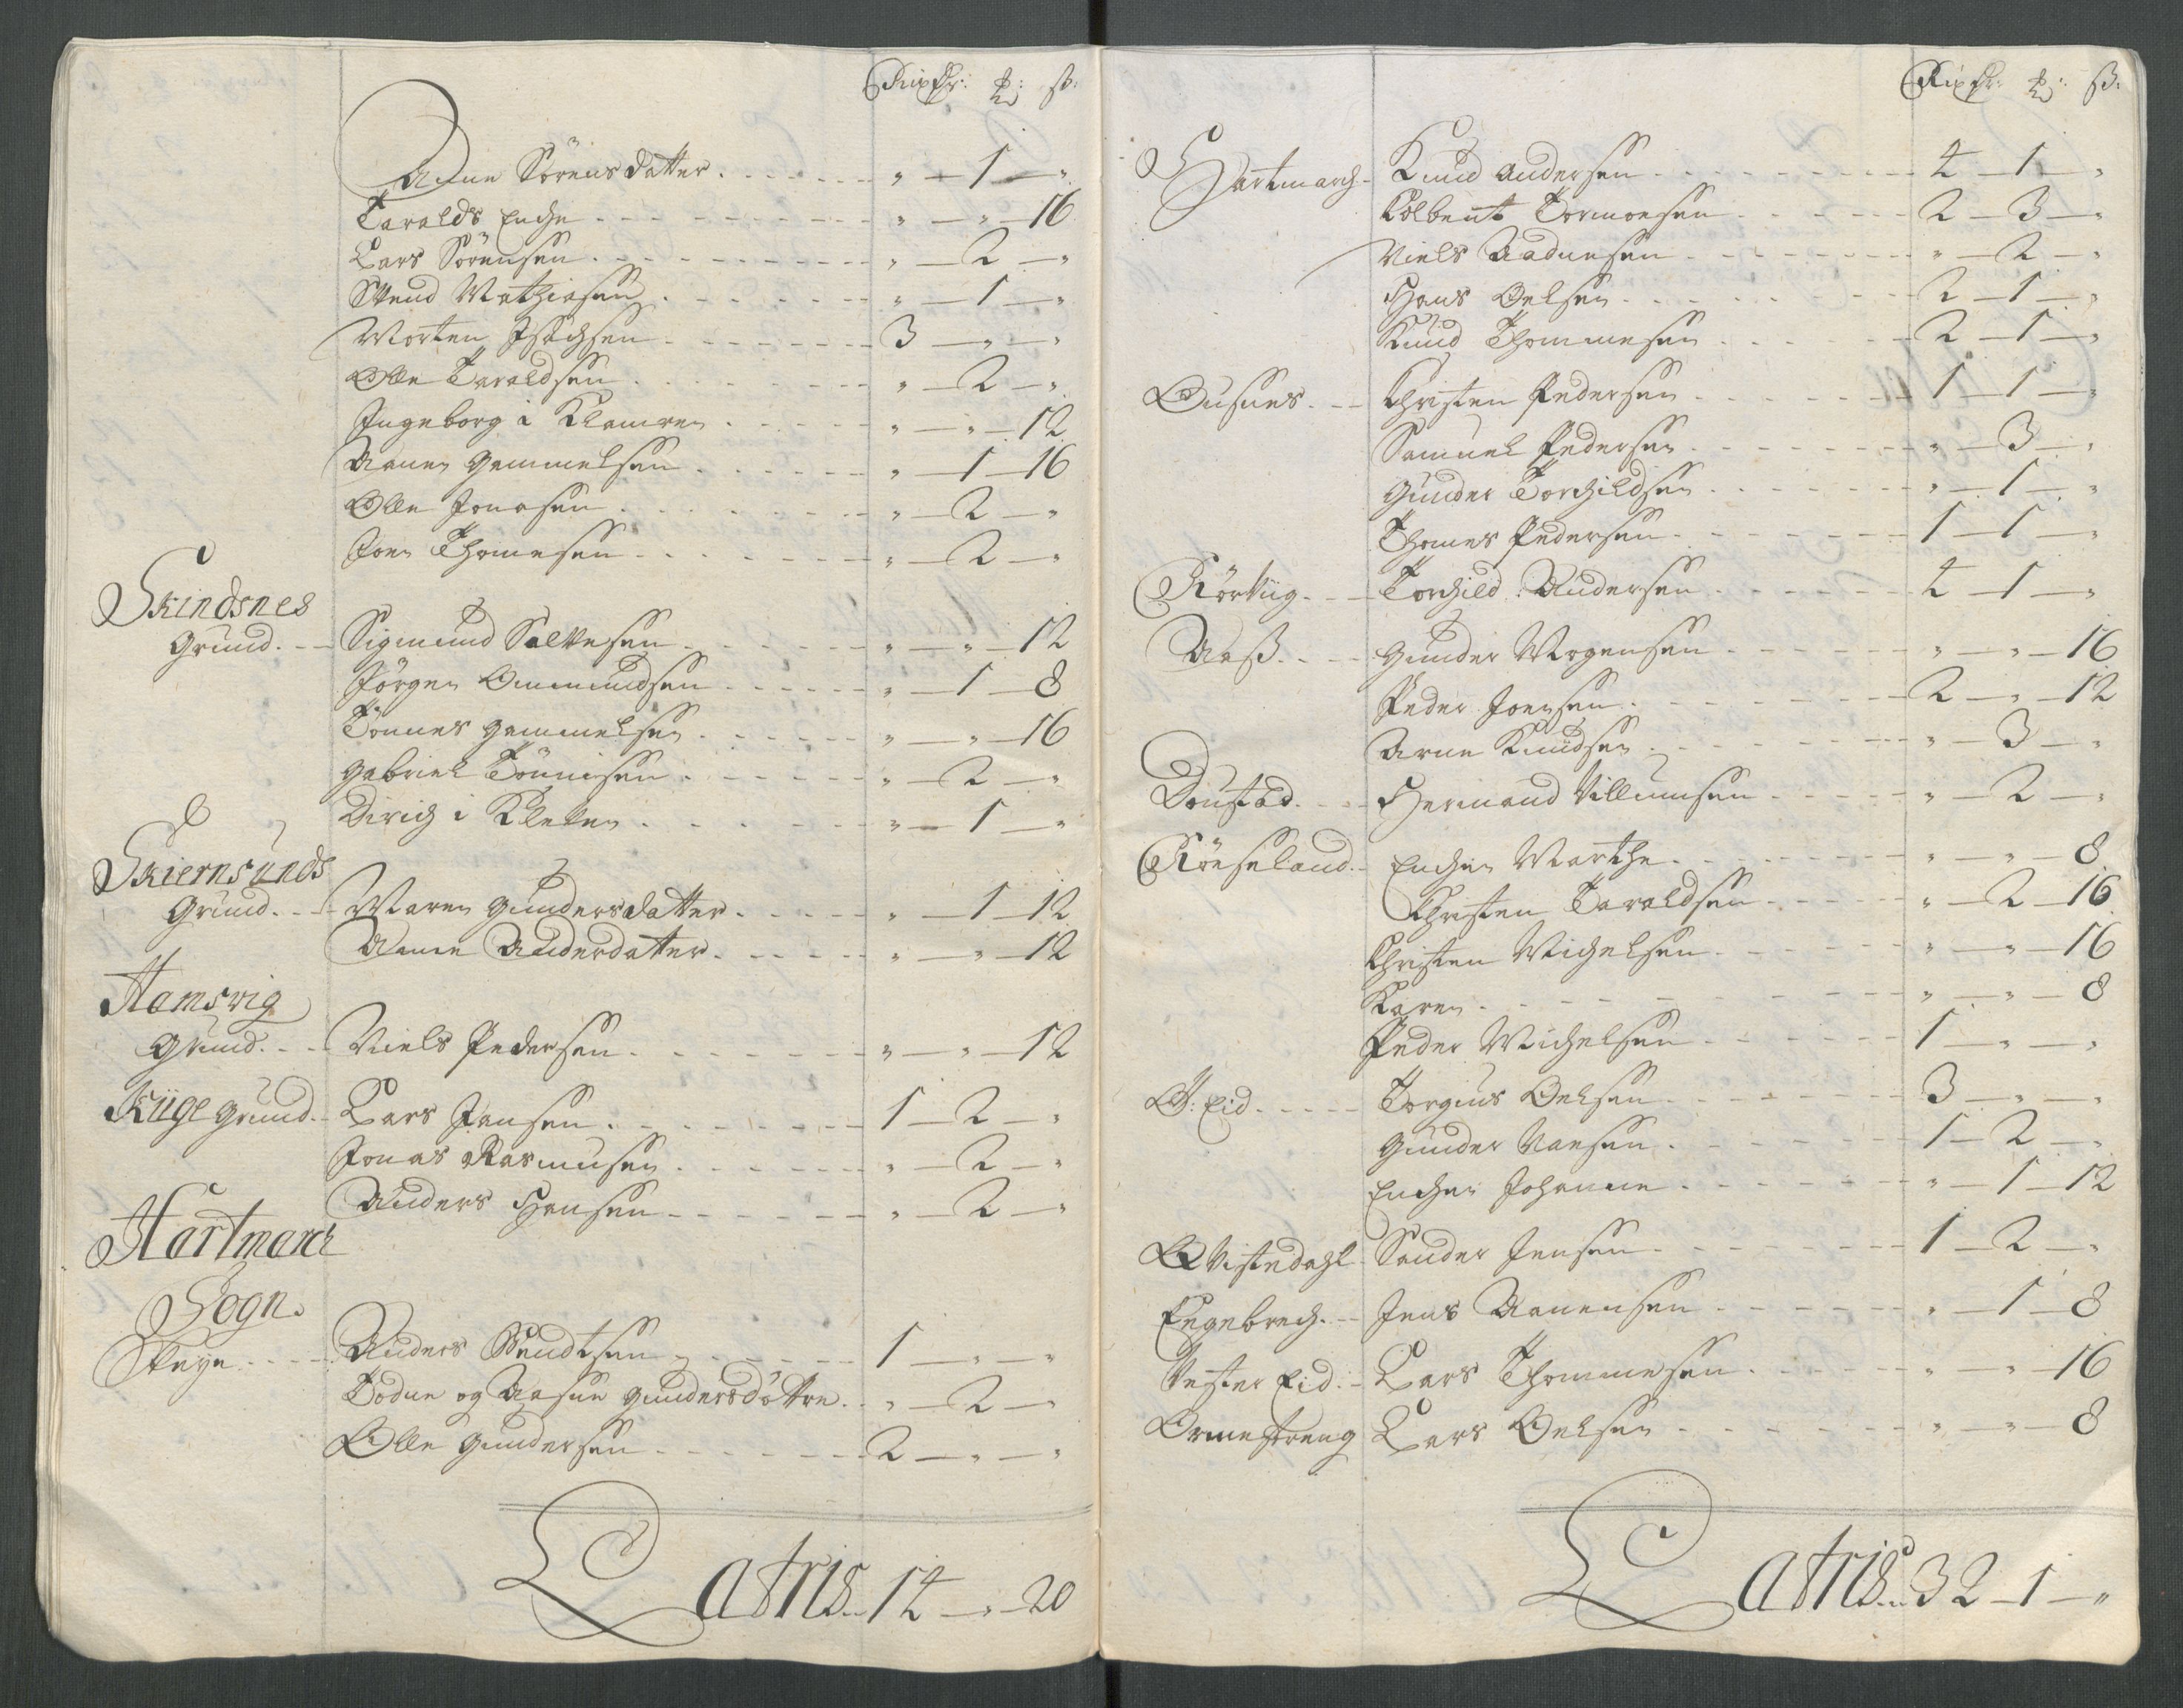 Rixdlr: ℔: ß:
Anne Sörens datter . . . . . . " — 1 — "
Taralds Enche . . . . . . " — " — 16
Lars Sörensen . . . . . . " — 2 — "
Svend Mathiesen . . . . . . " — 1 — "
Morten Isachsen . . . . . . 3 — " — "
Olle Taraldsen . . . . . . " — 2 — "
Ingeborg i Klamren . . . . . . " — " — 12
Aanen Gammelsen . . . . . . " — 1 — 16
Olle Jonasen . . . . . . " — 2 — "
Joen Thomesen . . . . . . " — 2 — "
Skindsnes
Grund. - - Sigmund Salvesen . . . . . . " — " — 12
Jörgen Ommundsen . . . . . . " — 1 — 8
Tönnes Gammelsen . . . . . . " — " — 16
Gabriel Tönnisen . . . . . . " — 2 — "
Dirich i Kleven . . . . . . " — 1 — "
Skiernsunds
Grund. - - Maren Gundersdatter . . . . . . " — 1 — 12
Anne Andersdatter . . . . . . " — " — 12
Hamsvig
Grund. - - Niels Pedersen . . . . . . " — " — 12
Kiige Grund. - Lars Jansen . . . . . . 1 — 2 — "
Jonas Rasmusen . . . . . . " — 2 — "
Anders Hansen . . . . . . " — 2 — "
Hartmarch
Sogn.
Skeye. . . . Anders Svendtsen . . . . . . 1 — " — "
Todne og Aasne Gundersdötre. . " — 2 — "
Olle Gundersen . . . . . . 2 — " — "
Latris . . 14 — " — 20
Rixdlr: ℔: ß:
Hartmarch - Knud Andersen . . . . . . 4 — 1 — "
Colbent Tormoesen . . . . . . 2 — 3 — "
Niels Aadnesen . . . . . . " — 2 — "
Hans Oelsen . . . . . . 2 — 1 — "
Knud Thommesen . . . . . . 2 — 1 — "
Ousnes. - - Christen Pedersen . . . . . . 1 — 1 — "
Samuel Pedersen . . . . . . " — 3 — "
Gunder Torchildsen . . . . . . " — 1 — "
Thomes Pedersen . . . . . . 1 — 1 — "
Rörviig. - - Torchild Andersen . . . . . . 4 — 1 — "
Aaß. . . . Gunder Mogensen . . . . . . " — " — 16
Peder Joensen . . . . . . 2 — " — 12
Arne Knudsen . . . . . . " — 3 — "
Doustad. . . Hermand Villumsen . . . . . . " — 2 — "
Röeseland. - Enchen Marthe . . . . . . " — " — 8
Christen Taraldsen . . . . . . " — 2 — 16
Christen Michelsen . . . . . . " — " — 16
Karen . . . . . . " — " — 8
Peder Michelsen . . . . . . 1 — " — "
O: Eid. . . . Torgius Oelsen . . . . . . 3 — " — "
Gunder Nansen . . . . . . 1 — 2 — "
Enchen Johanne . . . . . . " — 1 — 12
Qvistedahl - Sander Jensen . . . . . . 1 — 2 — "
Engebrech. - Jens Aanensen . . . . . . " — 1 — 8
Vester Eid. - Lars Thommesen . . . . . . " — " — 16
Ormestreng Lars Oelsen . . . . . . " — " — 8
Latris . . 32 — 1 — "